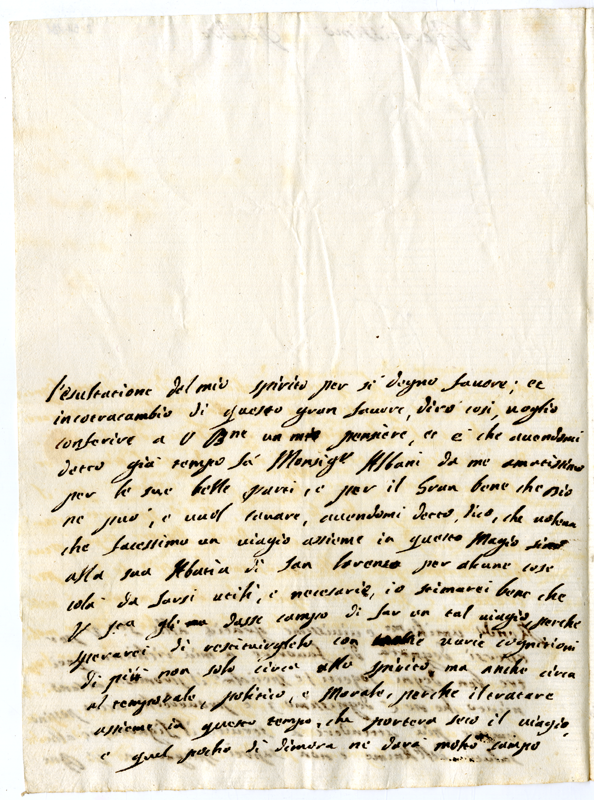 l'esultatione del mio spirito per si degno favore; et
incotracambio di questo gran favore, dirò cosi, voglio
conferire a V Bne un mio pensiere, et è che avendomi
detto già tempo fà Monsigr Albani da me amatissimo
per le sue belle parti, e per il Gran bene che Dio
ne può, e vuol cavare, avendomi detto, dico, che voleva
che facessimo un viagio assieme in questo Magio
alla sua Abatia di San Lorenzo per alcune cose
colà da farsi utili, e necesarie, io stimarei bene che
V Sta gli dasse campo di far un tal viagio, perche
sperarei di restituirglelo con varie cognitioni
di più non solo circa allo spirito, ma anche circa
al temporale, politico, e Morale, perche il tratare
assieme in questo tempo, che portera seco il viagio,
e quel pocho di dimora ne darà molto campo